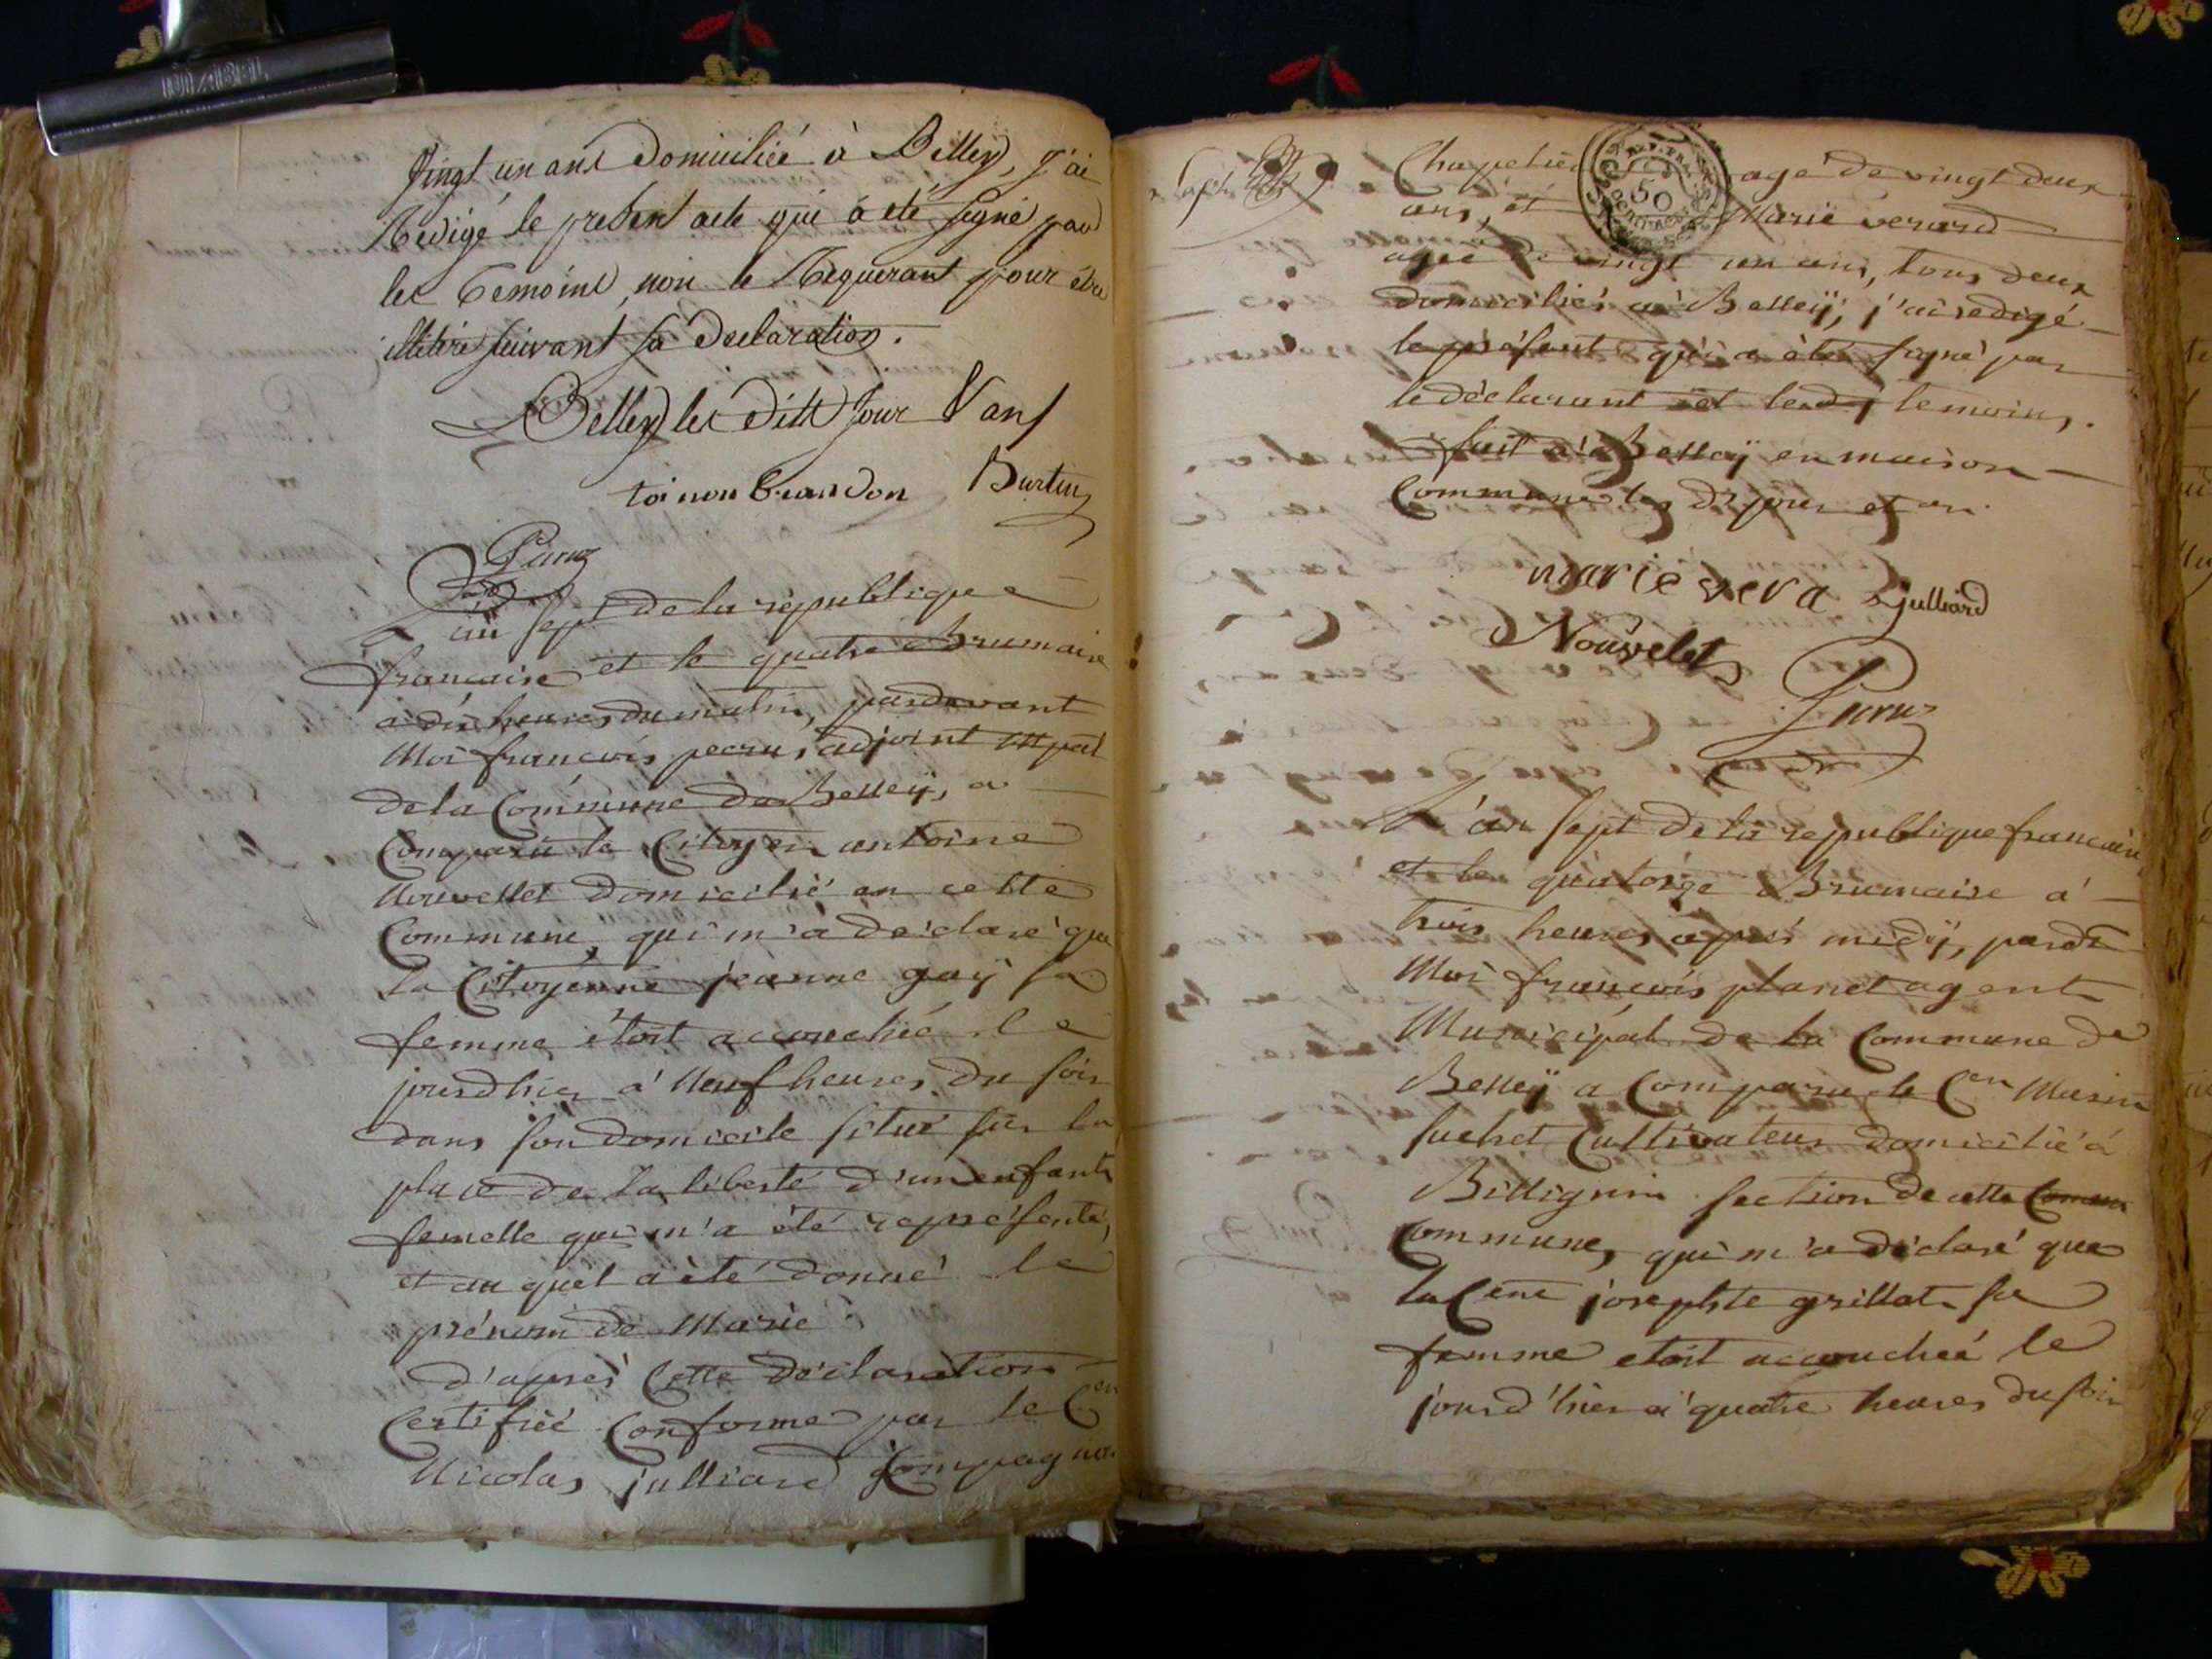 vingt un ans domiciliée à Belley, j'ai
Redigé le present acte qui à été signé par
les temoins, non le Requerant pour être
illitéré suivant sa declaration.
Belley les dits jour & an
toinon brandon Burtin
Peru
L'an sept de la republique
francaise et le quatre Brumaire
à dix heures du matin, pardevant
Moi francois peru, adjoint Mpal
de la Commune de Belley, a
Comparu le Citoyen antoine
Nouvellet domicilié en cette
Commune, qui m'a déclaré que
la Citoyenne jeanne gaÿ sa
femme étoit accouchée le
jourd'hier à Neuf heures du soir
dans son domicile situé sur la
place de la liberté d'un enfant
femelle qui m'a été représenté,
et au quel a été donné le
prénom de Marie.
d'après Cette déclaration
Certifiée Conforme par le Cen
Nicolas julliard Compagnon
Chapelier agé de vingt deux
ans, et Marie verard
agée de vingt un ans, tous deux
domiciliés à Belleÿ, j'ai redigé
le présent qui a été signé par
le déclarant et lesd. temoins.
fait à Belleÿ en maison
Commune les d. jour et an.
marie vera Julliard
Nouvelet
Peru
L'an sept de la republique francaise
et le quatorze Brumaire à
trois heures après midÿ, pardt
Moi francois planet agent
Municipal de la Commune de
Belleÿ a Comparu le Cen Marin
suchet Cultivateur domicilié à
Billignin section de cette Commu
Commune, qui m'a déclaré que
la Cene josephte grillat sa
femme etoit accouchée le
jourd'hier à quatre heures du soir
50